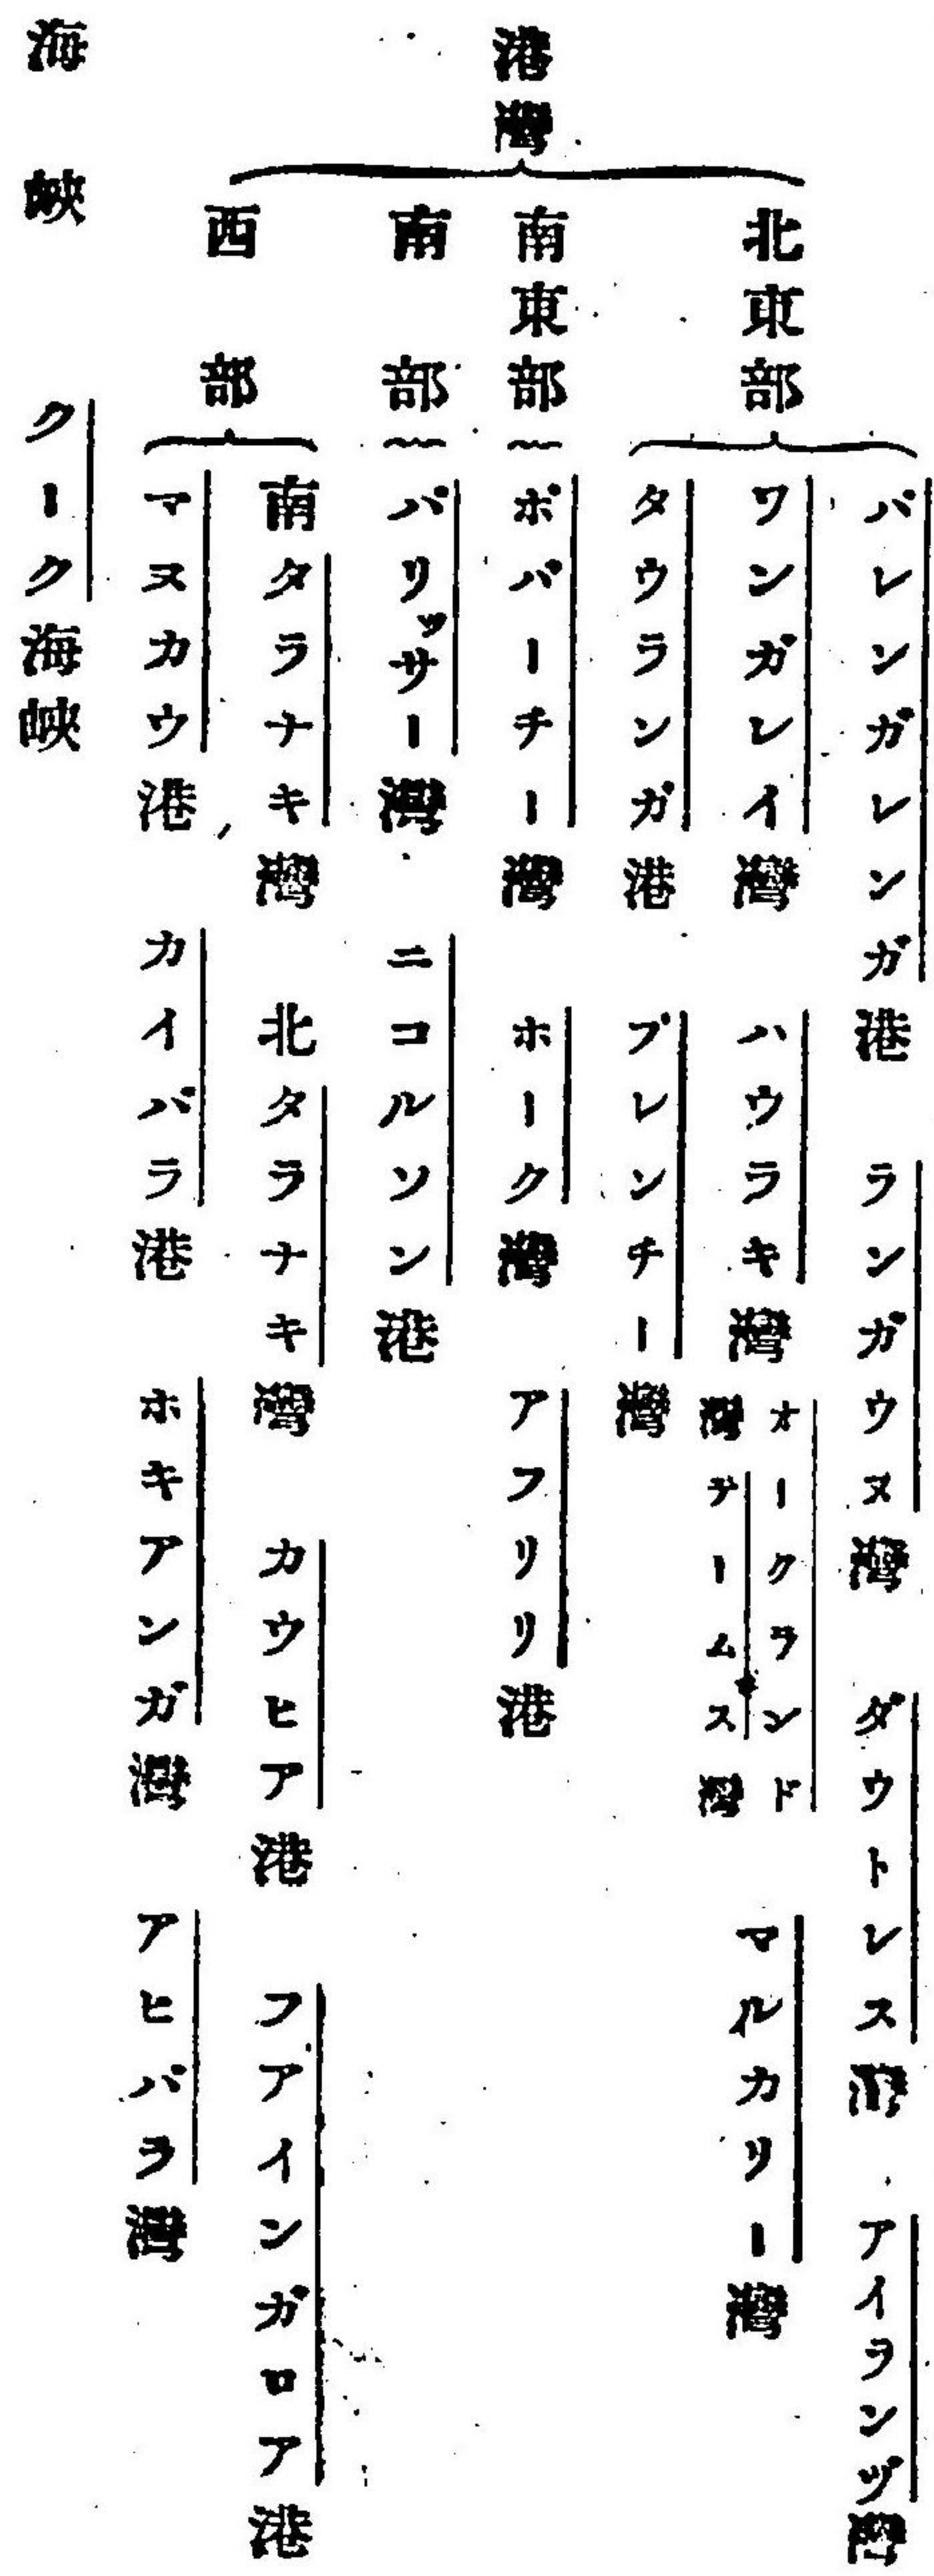 港灣
北東部
バレンガレンガ港 ランガウヌ灣 ダウトレス灣 アイランヅ灣
ワンガレイ灣 ハウラキ灣 オークランド灣 テームス灣 マルカリー灣
タウランガ港 プレンチー灣
南東部
ポバーチー灣 ホーク灣 アフリリ港
南部
パリッサー灣 ニコルソン港
西部
南タラナキ灣 北タラナキ灣 カウヒア港 フアインガロア港
マヌカウ港 カイパラ港 ホキアンガ灣 アヒパラ灣
海峽 クーク海峽